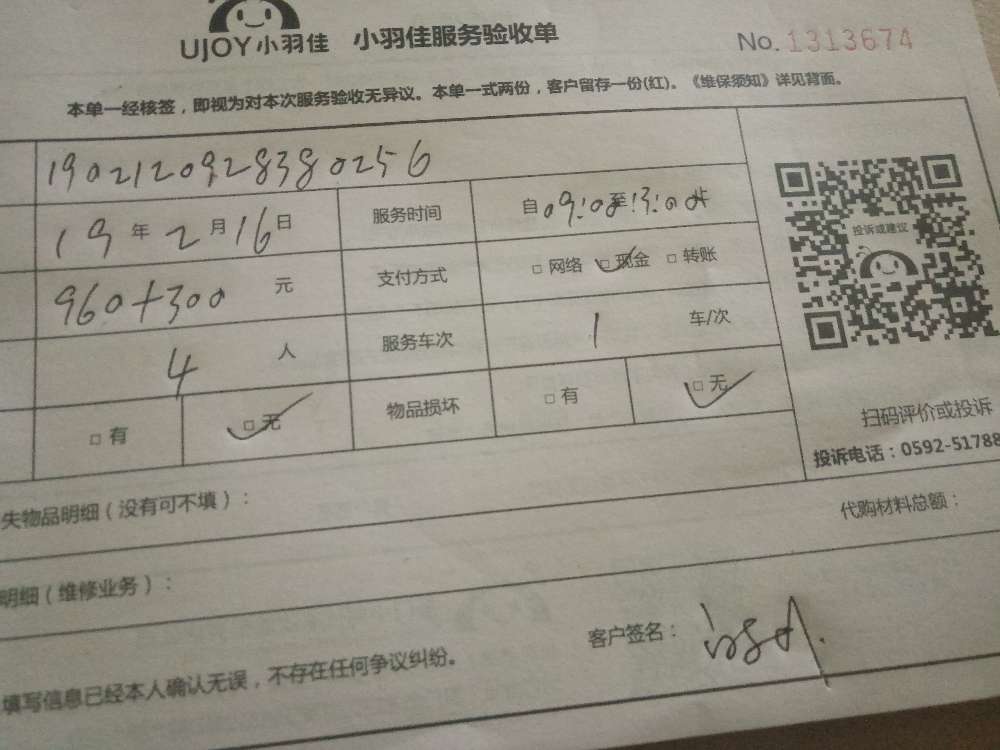 UJOY小羽佳 小羽佳服务验收单 No. 1313674
本单一经核签，即视为对本次服务验收无异议。本单一式两份，客户留存一份(红)。《维保须知》详见背面。
190212092838025 6
19 年 2 月 16 日 服务时间 自 09:00 至 13:00 止
960+300 元 支付方式 □ 网络 □ 现金 □ 转账
4 人 服务车次 1 车/次
□ 有 □ 无 物品损坏 □ 有 □ 无
投诉或建议
扫码评价或投诉
投诉电话：0592-51788
失物品明细（没有可不填）：
代购材料总额：
明细（维修业务）：
客户签名：
填写信息已经本人确认无误，不存在任何争议纠纷。